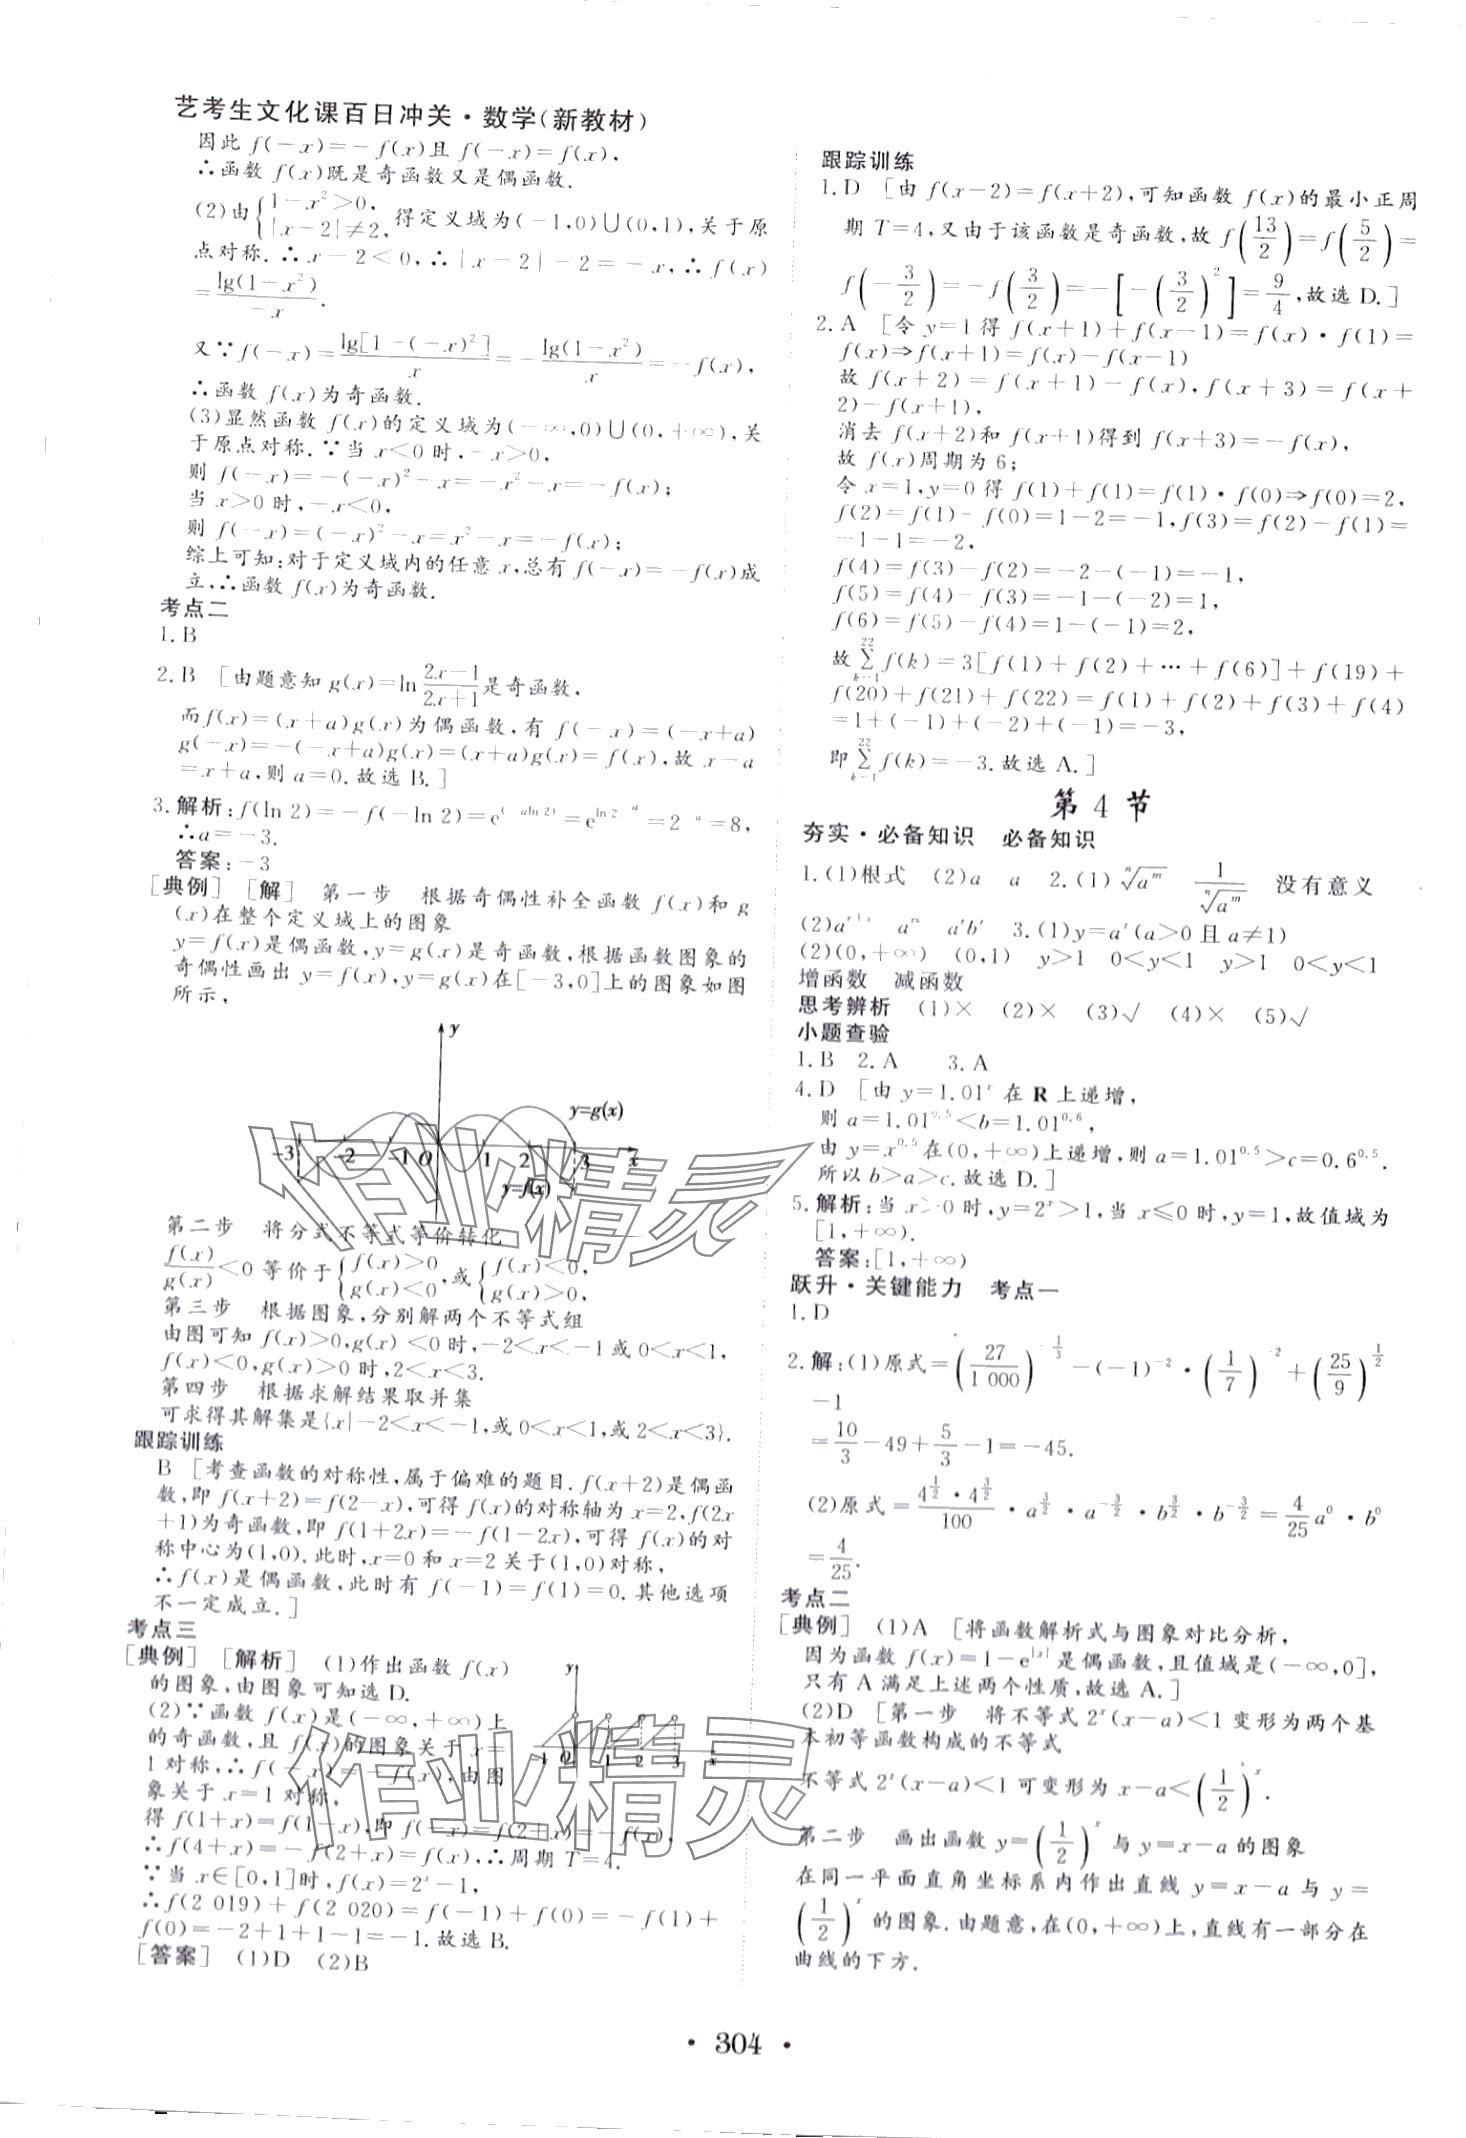 艺考生文化课百日冲关·数学(新教材)
因此 f(-x)=-f(x)且 f(-x)=f(x),
∴函数 f(x)既是奇函数又是偶函数.
(2)由{1-x²>0, |x-2|≠2, 得定义域为(-1,0)∪(0,1),关于原
点对称.∴x-2<0,∴|x-2|-2=-x,∴f(x)
=lg(1-x²)/-x.
又∵f(-x)=lg[1-(-x)²]/x=-lg(1-x²)/x=-f(x),
∴函数 f(x)为奇函数.
(3)显然函数 f(x)的定义域为(-∞,0)∪(0,+∞),关
于原点对称.∵当 x<0 时,-x>0,
则 f(-x)=-(-x)²-x=-x²-x=-f(x);
当 x>0 时,-x<0,
则 f(-x)=(-x)²-x=x²-x=-f(x);
综上可知:对于定义域内的任意 x,总有 f(-x)=-f(x)成
立,∴函数 f(x)为奇函数.
考点二
1.B
2.B [由题意知 g(x)=ln(2x-1)/(2x+1)是奇函数,
而f(x)=(x+a)g(x)为偶函数,有 f(-x)=(-x+a)
g(-x)=-(-x+a)g(x)=(x+a)g(x)=f(x),故 x-a
=x+a,则 a=0.故选 B.]
3.解析:f(ln 2)=-f(-ln 2)=e^(-aln 2)=e^(ln 2^-a)=2^-a=8,
∴a=-3.
答案:-3
[典例] [解] 第一步 根据奇偶性补全函数 f(x)和 g
(x)在整个定义域上的图象
y=f(x)是偶函数,y=g(x)是奇函数,根据函数图象的
奇偶性画出 y=f(x),y=g(x)在[-3,0]上的图象如图
所示,
y
y=g(x)
-3 -2 -1 O 1 2 3 x
y=f(x)
第二步 将分式不等式等价转化
f(x)/g(x)<0 等价于{f(x)>0 g(x)<0,或{f(x)<0, g(x)>0,
第三步 根据图象,分别解两个不等式组
由图可知 f(x)>0,g(x)<0时,-2<x<-1或0<x<1,
f(x)<0,g(x)>0时,2<x<3.
第四步 根据求解结果取并集
可求得其解集是{x|-2<x<-1,或0<x<1,或2<x<3}.
跟踪训练
B [考查函数的对称性,属于偏难的题目.f(x+2)是偶函
数,即 f(x+2)=f(2-x),可得 f(x)的对称轴为 x=2,f(2x
+1)为奇函数,即 f(1+2x)=-f(1-2x),可得 f(x)的对
称中心为(1,0).此时,x=0 和 x=2 关于(1,0)对称,
∴f(x)是偶函数,此时有 f(-1)=f(1)=0.其他选项
不一定成立.]
考点三
[典例] [解析] (1)作出函数 f(x)
的图象,由图象可知选 D.
(2)∵函数 f(x)是(-∞,+∞)上
的奇函数,且 f(x)的图象关于 x=
1 对称,∴f(-x)=-f(x),由图
象关于 x=1 对称,
y
-1 O 1 2 3 x
得 f(1+x)=f(1-x),即 f(-x)=f(2+x)=-f(x),
∴f(4+x)=-f(2+x)=f(x),∴周期 T=4.
∵当 x∈[0,1]时,f(x)=2^x-1,
∴f(2 019)+f(2 020)=f(-1)+f(0)=-f(1)+
f(0)=-2+1+1-1=-1.故选 B.
[答案] (1)D (2)B
跟踪训练
1.D [由 f(x-2)=f(x+2),可知函数 f(x)的最小正周
期 T=4,又由于该函数是奇函数,故 f(13/2)=f(5/2)=
f(-3/2)=-f(3/2)=-[-(3/2)²]=9/4,故选 D.]
2.A [令 y=1 得 f(x+1)+f(x-1)=f(x)·f(1)=
f(x)⇒f(x+1)=f(x)-f(x-1)
故 f(x+2)=f(x+1)-f(x),f(x+3)=f(x+
2)-f(x+1),
消去 f(x+2)和 f(x+1)得到 f(x+3)=-f(x),
故 f(x)周期为 6;
令 x=1,y=0 得 f(1)+f(1)=f(1)·f(0)⇒f(0)=2,
f(2)=f(1)-f(0)=1-2=-1,f(3)=f(2)-f(1)=
-1-1=-2,
f(4)=f(3)-f(2)=-2-(-1)=-1,
f(5)=f(4)-f(3)=-1-(-2)=1,
f(6)=f(5)-f(4)=1-(-1)=2,
故 22∑k=1 f(k)=3[f(1)+f(2)+…+f(6)]+f(19)+
f(20)+f(21)+f(22)=f(1)+f(2)+f(3)+f(4)
=1+(-1)+(-2)+(-1)=-3,
即 22∑k=1 f(k)=-3.故选 A.]
第 4 节
夯实·必备知识 必备知识
1.(1)根式 (2)a a 2.(1)ⁿ√a^m 1/ⁿ√a^m 没有意义
(2)a^(r+s) a^rs a^r b^r 3.(1)y=a^x(a>0 且 a≠1)
(2)(0,+∞) (0,1) y>1 0<y<1 y>1 0<y<1
增函数 减函数
思考辨析 (1)× (2)× (3)√ (4)× (5)√
小题查验
1.B 2.A 3.A
4.D [由 y=1.01^x 在 R 上递增,
则 a=1.01^0.5<b=1.01^0.6,
由 y=x^0.5在(0,+∞)上递增,则 a=1.01^0.5>c=0.6^0.5.
所以 b>a>c.故选 D.]
5.解析:当 x>0 时,y=2^x>1,当 x≤0 时,y=1,故值域为
[1,+∞).
答案:[1,+∞)
跃升·关键能力 考点一
1.D
2.解:(1)原式=(27/1 000)^(-1/3)-(-1)^-2·(1/7)^-2+(25/9)^(1/2)
-1
=10/3-49+5/3-1=-45.
(2)原式=4^(1/2)·4^(3/2)/100·a^(3/2)·a^(-3/2)·b^(3/2)·b^(-3/2)=4/25 a⁰·b⁰
=4/25.
考点二
[典例] (1)A [将函数解析式与图象对比分析,
因为函数 f(x)=1-e^|x|是偶函数,且值域是(-∞,0],
只有 A 满足上述两个性质,故选 A.]
(2)D [第一步 将不等式 2^x(x-a)<1 变形为两个基
本初等函数构成的不等式
不等式 2^x(x-a)<1 可变形为 x-a<(1/2)^x.
第二步 画出函数 y=(1/2)^x 与 y=x-a 的图象
在同一平面直角坐标系内作出直线 y=x-a 与 y=
(1/2)^x 的图象.由题意,在(0,+∞)上,直线有一部分在
曲线的下方.
·304·
作业精灵
作业精灵